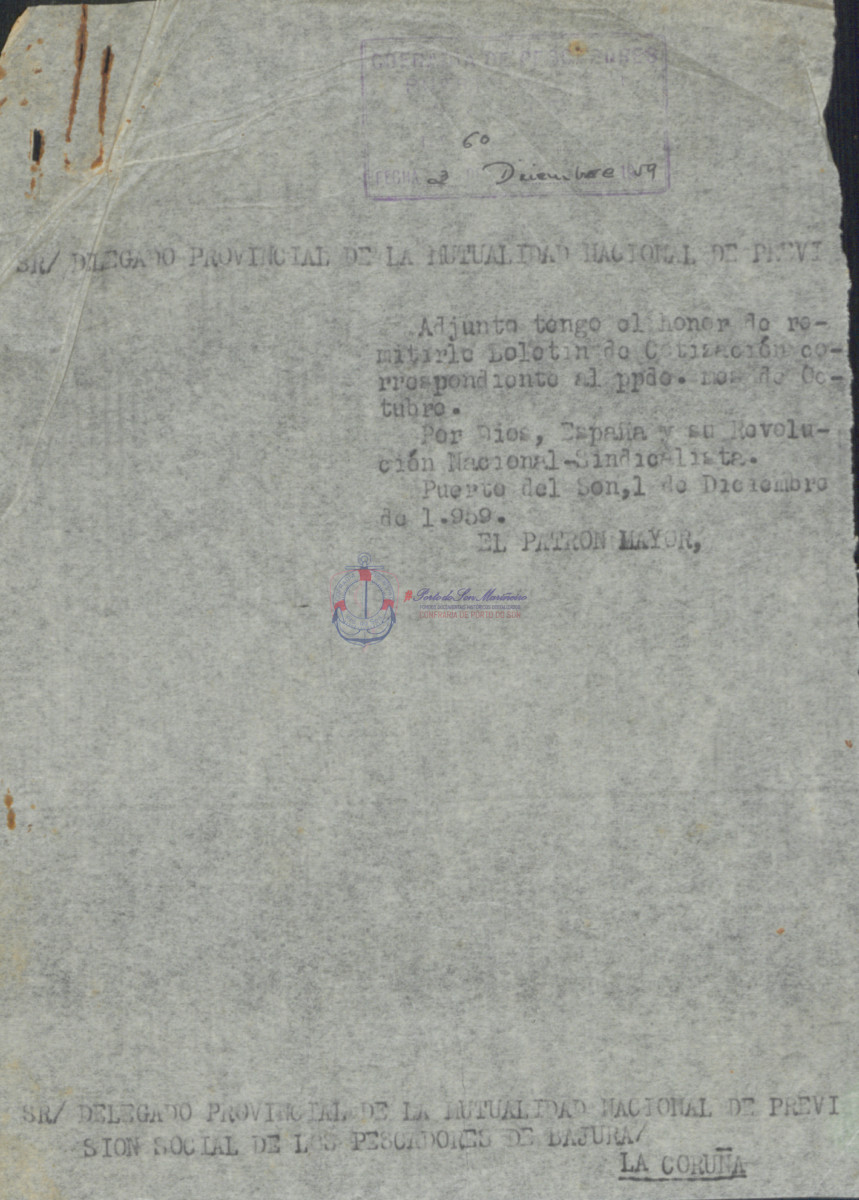 COFRADIA DE PESCADORES
60
FECHA 2 Diciembre 1959
SR/ DELEGADO PROVINCIAL DE LA MUTUALIDAD NACIONAL DE PREVI
Adjunto tengo el honor de re-
mitirle Boletin de Cotización co-
rrespondiente al ppdo. mes de Oc-
tubre.
Por Dios, España y su Revolu-
ción Nacional-Sindicalista.
Puerto del Son,1 de Diciembre
de 1.959.
EL PATRON MAYOR,
Porto do Son Mariñeiro
CONFRARÍA DE PORTO DO SON
SR/ DELEGADO PROVINCIAL DE LA MUTUALIDAD NACIONAL DE PREVI
SION SOCIAL DE LOS PESCADORES DE BAJURA/
LA CORUÑA